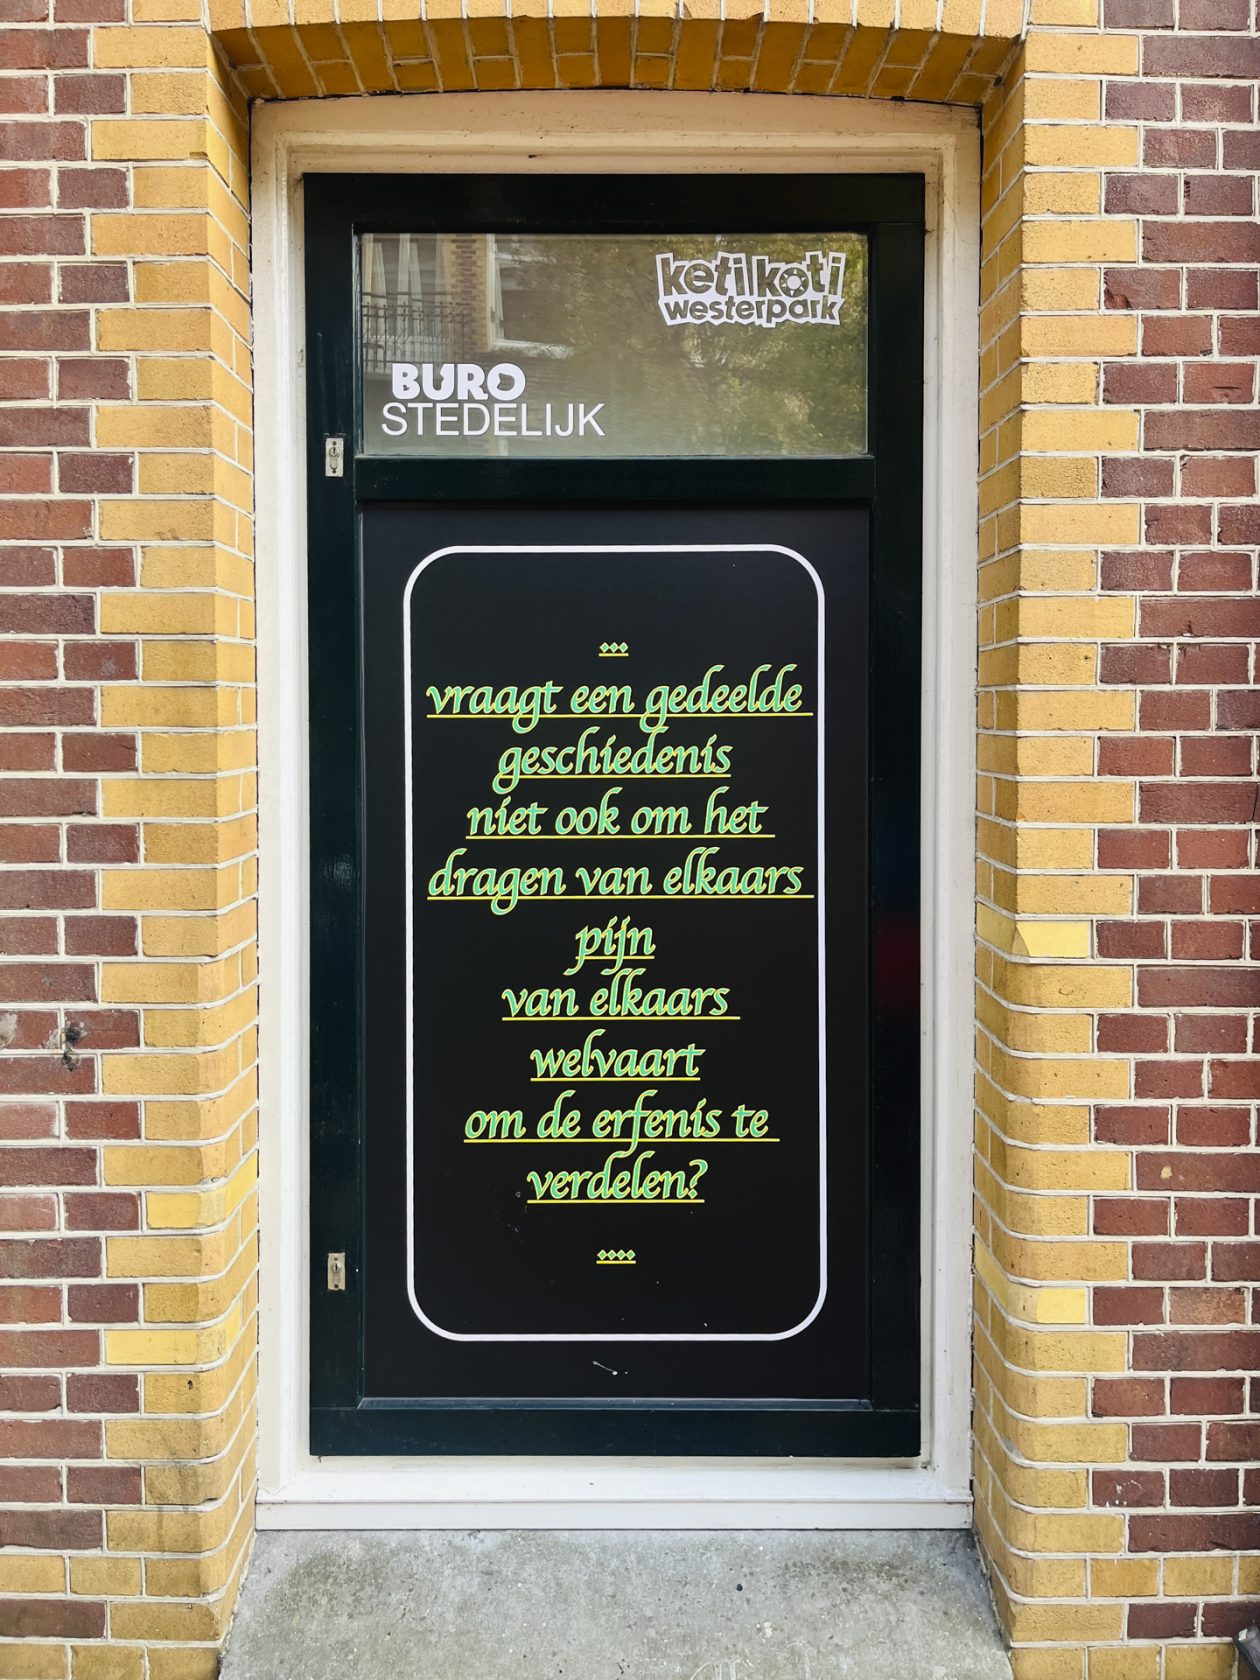 keti koti
westerpark
BURO
STEDELIJK
vraagt een gedeelde
geschiedenis
niet ook om het
dragen van elkaars
pijn
van elkaars
welvaart
om de erfenis te
verdelen?